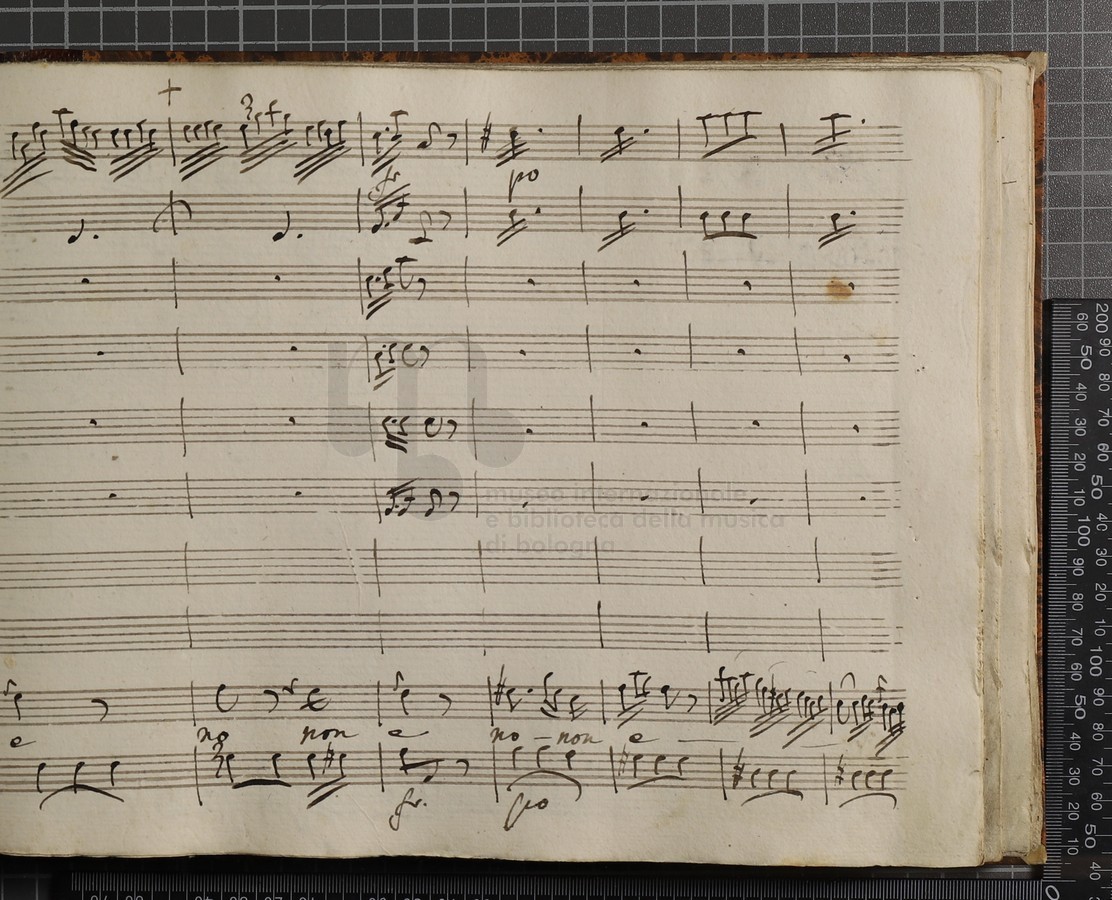 po
museo internazionale
e biblioteca della musica
di bologna
e no non e no - non e
fr. po
200 90 80 70 60 50 40 30 20 10 100 90 80 70 60 50 40 30 20 10
60 50 40 30 20 10 100 90 80 70 60 50 40 30 20 10 0